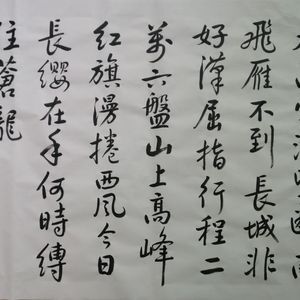 飛雁不到長城非
好漢屈指行程二
萬六盤山上高峰
紅旗漫捲西風今日
長纓在手何時縛
住蒼龍